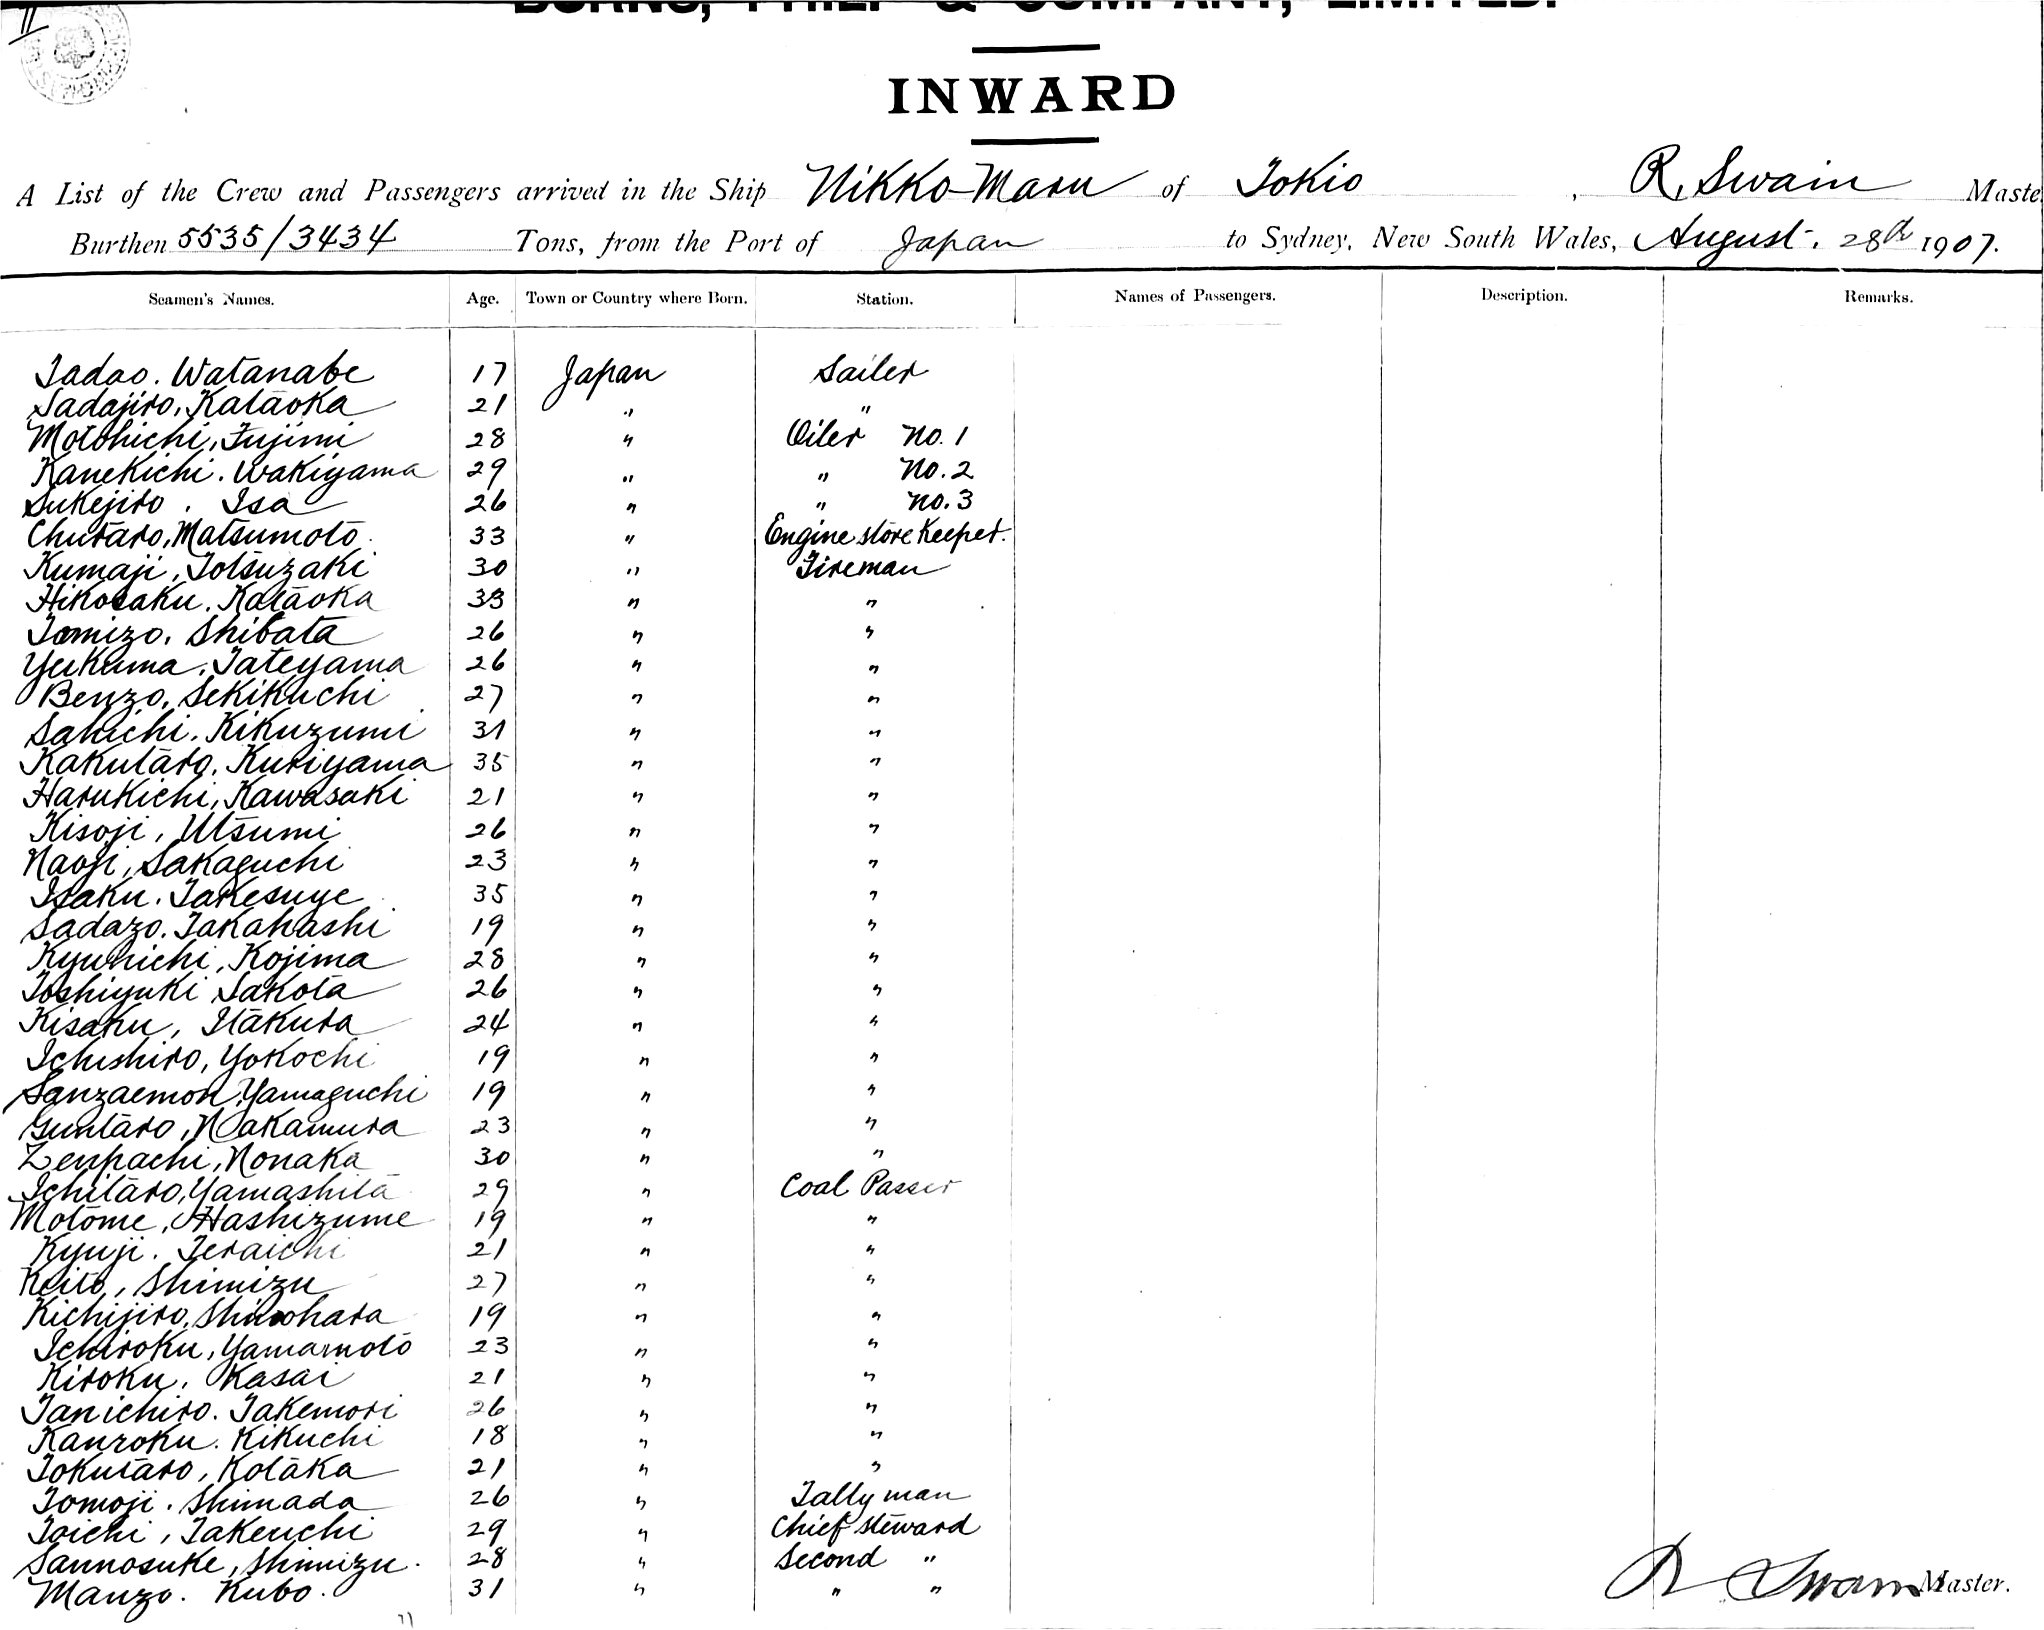 BURNS, PHILP & COMPANY, LIMITED.
INWARD
A List of the Crew and Passengers arrived in the Ship Nikko Maru of Tokio, R. Swain Maste
Burthen 5535/3434 Tons, from the Port of Japan to Sydney, New South Wales, August. 28th 1907.
Seamen's Names. Age. Town or Country where Born. Station. Names of Passengers. Description. Remarks.
Tadao. Watanabe 17 Japan Sailer
Sadajiro, Kataoka 21 " "
Motohichi, Fujimi 28 " Oiler No. 1
Kanekichi. Wakiyama 29 " " No. 2
Sukejiro. Isa 26 " " No. 3
Chutaro, Matsumoto. 33 " Engine store Keeper.
Kumaji, Totsuzaki 30 " Fireman
Hikosaku. Kataoka 33 " "
Tomizo. Shibata 26 " "
Yukuma. Tateyama 26 " "
Benzo. Sekikuchi 27 " "
Sakichi. Kikuzumi 31 " "
Kakutaro. Kuriyama 35 " "
Harukichi, Kawasaki 21 " "
Kisoji, Utsumi 26 " "
Naoji, Sakaguchi 23 " "
Isaku. Takesuye 35 " "
Sadazo. Takahashi 19 " "
Kyuhichi, Kojima 28 " "
Toshiyuki Sakota 26 " "
Kisaku, Itakura 24 " "
Ichishiro, Yokochi 19 " "
Sanzaemon, Yamaguchi 19 " "
Guntaro, Nakamura 23 " "
Zenpachi, Nonaka 30 " "
Ichitaro, Yamashita 29 " Coal Passer
Motome, Hashizume 19 " "
Kyuji. Teraichi 21 " "
Keito, Shimizu 27 " "
Kichijiro, Shinohara 19 " "
Ichiroku, Yamamoto 23 " "
Kiroku. Kasai 21 " "
Tanichiro. Takemori 26 " "
Kanroku. Kikuchi 18 " "
Tokutaro, Kotaka 21 " "
Tomoji. Shimada 26 " Tally man
Toichi, Takeuchi 29 " Chief steward
Sannosuke, Shimizu. 28 " Second "
Manzo. Kubo. 31 " " "
R Swain Master.